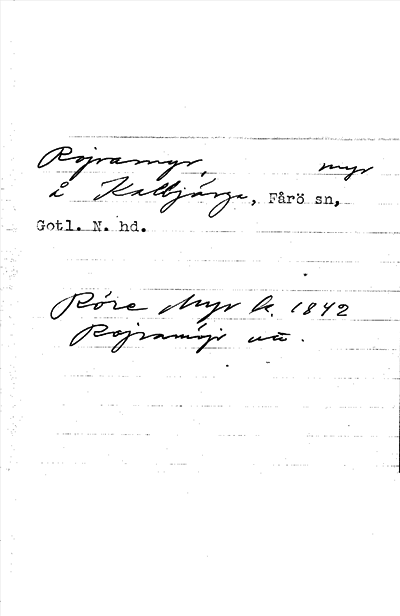 Rojramyr, myr
å Kalbjärga, Fårö sn,
Gotl. N. hd.
Röre Myr k. 1842
Rojramöjr uu.